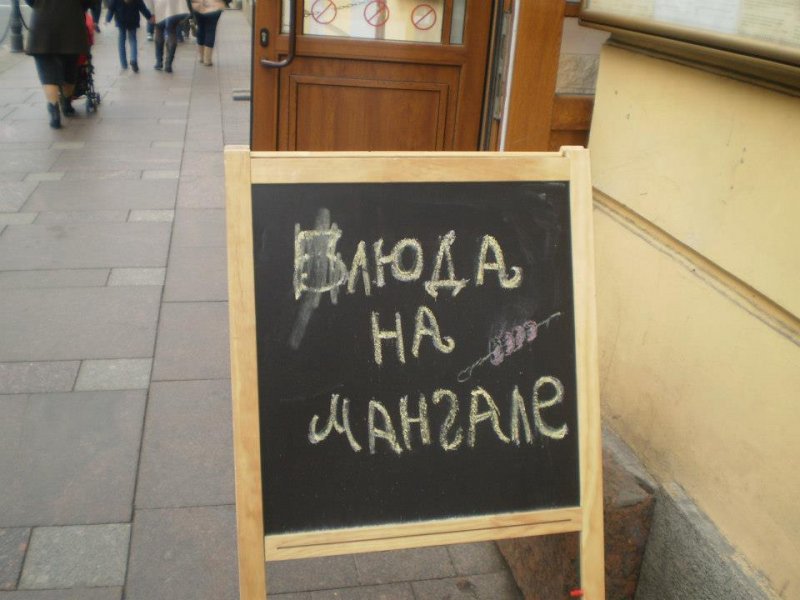 Блюда
на
мангале